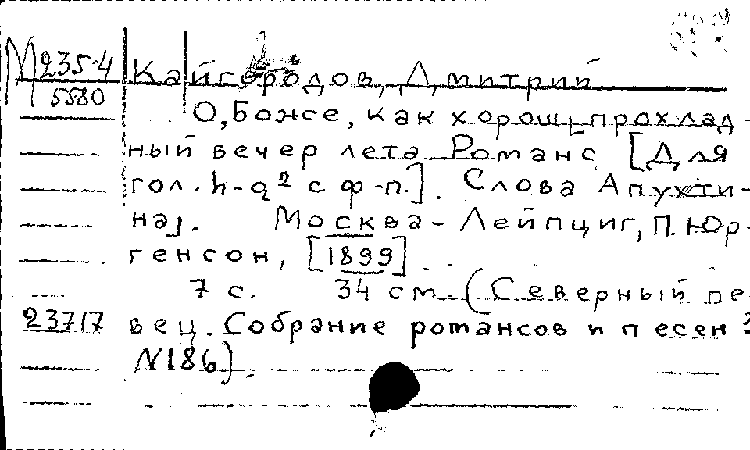 М 235-4
5580
Кайгородов, Дмитрий
О, Боже, как хорош прохлад-
ный вечер лета Романс [Для
гол. h-g² с ф-п.]. Слова Апухти-
на].  Москва-Лейпциг, П. Юр-
генсон, [1899].
7 с.  34 см. (Северный пе-
23717 вец. Собрание романсов и песен
N186).